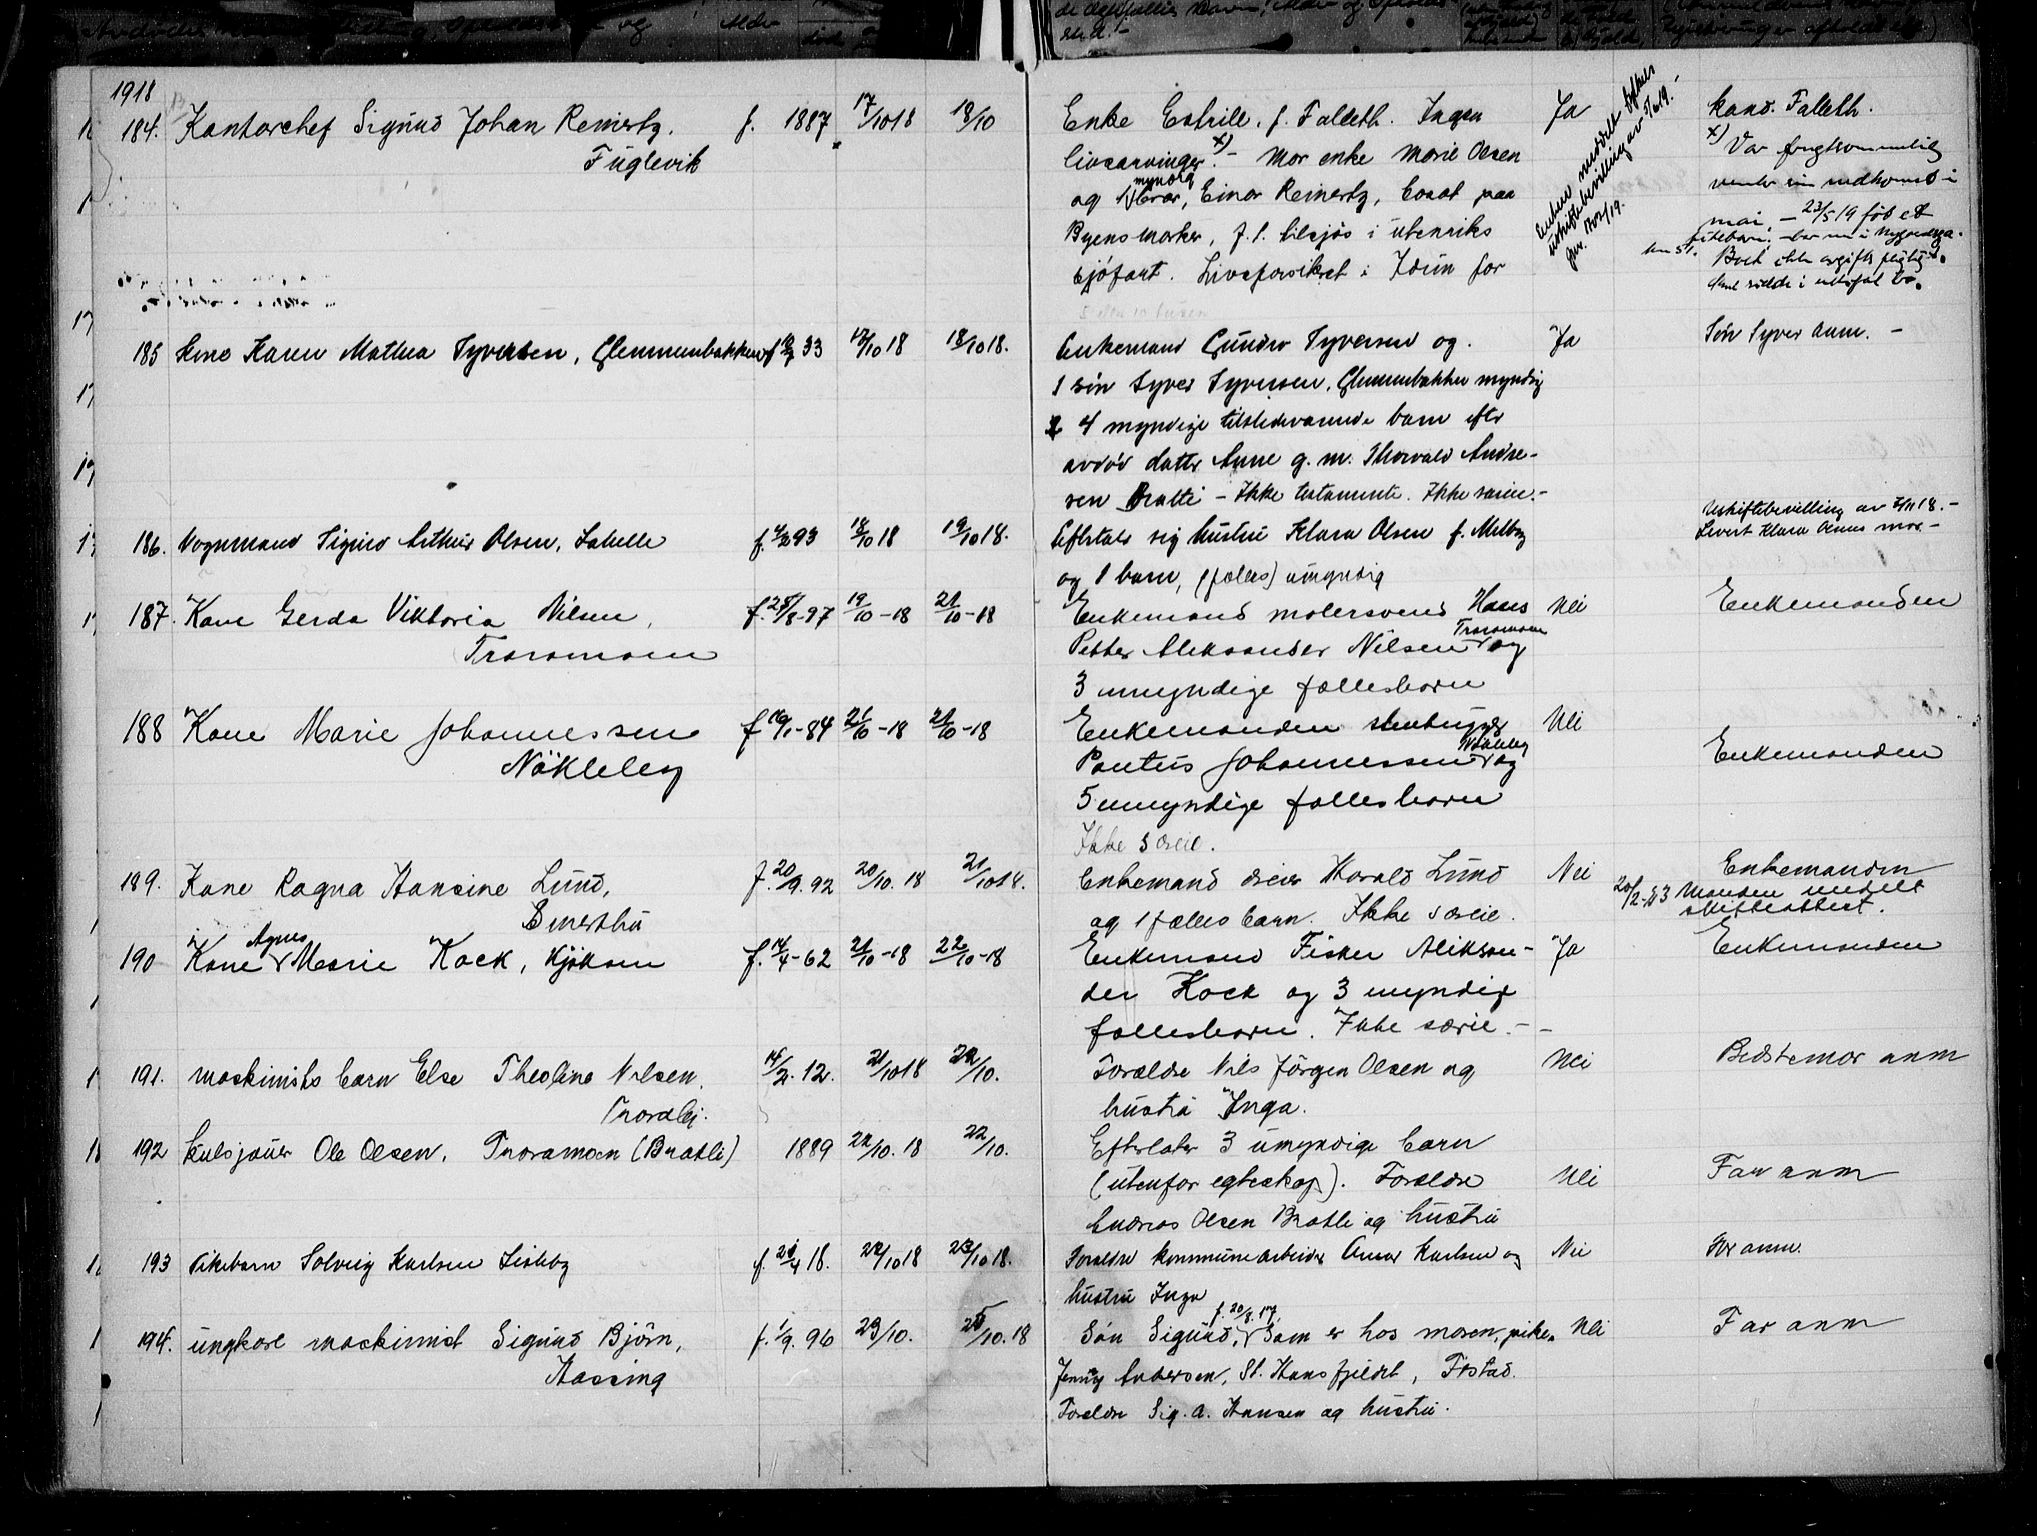 1918
184. Kontorchef Sigurd Johan Reinertz. f. 1887. 17/10 18 18/10 Enke Estrill, f. Falleth. Ingen Ja kand. Falleth.
Fuglevik livsarvinger x) – Mor enke Marie Olsen x) Var frugtsommelig
og myndig bror, Einar Reinertz, bosat paa venter sin nedkomst i
Byens marker, f. t. tilsjøs i utenriks mai, – 23/5 19 fød et
pikebarn.
sjöfart. Livsforsikret i Idun for
Boet ikke avgiftspligtig.
185 Kone Karen Mathea Syversen, Glemmenbakken 33 17/10 18 18/10 18. Enkemand Gunder Syversen og Ja Sön Syver anm. –
1 sön Syver Syversen, Glemmenbakken myndig
4 myndige tilstedeværende barn efter
avdöd datter Anne g. m. Thorvald Andre-
sen Bratli – Ikke testamente. Ikke særeie. –
Uskiftebevilling av
186. Vognmand Sigurd Arthur Olsen, Labelle f. 93 18/10 18 19/10 18. Efterlater sig hustru Klara Olsen f. Melby Levert Klara Olsens mor. –
og 1 barn, (fælles) umyndig
187. Kone Gerda Viktoria Nilsen, f. 25/8-97 19/10-18 21/10-18 Enkemand malersvend Hans Nei Enkemanden
Traramoen Petter Aleksander Nilsen Traramoen og
3 umyndige fællesbarn
188 Kone Marie Johannessen f 19/1-84 21/10-18 21/10-18 Enkemanden stenhugger Nei
Nökleby Pontus Johannessen Nökleby og Enkemanden
5 umyndige fællesbarn
Ikke særeie.
189. Kone Ragna Hansine Lund, f. 20/9. 92 20/10. 18 21/10 18. Enkemand dreier Harald Lund Nei Enkemanden
Smertu og 1 fælles barn. Ikke særeie. 20/2-53 Manden meddelt
skifteattest.
190 Kone Agnes Marie Kock, Kjöksen f. 14/4-62 21/10-18 22/10-18 Enkemand Fisker Aleksan- Ja Enkemanden
der Kock og 3 myndige
fællesbarn. Ikke særeie. – –
191. Maskinists barn Else Theoline Nilsen. 14/2. 12. 21/10 18 22/10. Forældre Nils Jörgen Olsen og Nei Bedstemor anm
Traraley. hustru Inga.
192 Kulsjauer Ole Olsen, Traramoen (Bratli) 1889 22/10. 18 22/10. Efterlater 3 umyndige barn
(utenfor egteskap). Forældre Nei Far anm
Andreas Olsen Bratli og hustru
193 Pikebarn Solveig Karlsen Lisleby f. 21/4 18. 22/10 18 23/10 18. Forældre kommunearbeider Anar Karlsen og Nei Far anm.
hustru Inga
194. ungkarl maskinist Sigurd Björn, f. 1/9. 96 23/10. 25/10. 18 Sön Sigurd, f. 20/8. 17. som er hos moren, piken Nei Far anm
Hassing Jenny Andersen, St. Hansfjeldet, F.stad.
Forældre Sig. A. Hansen og hustru.